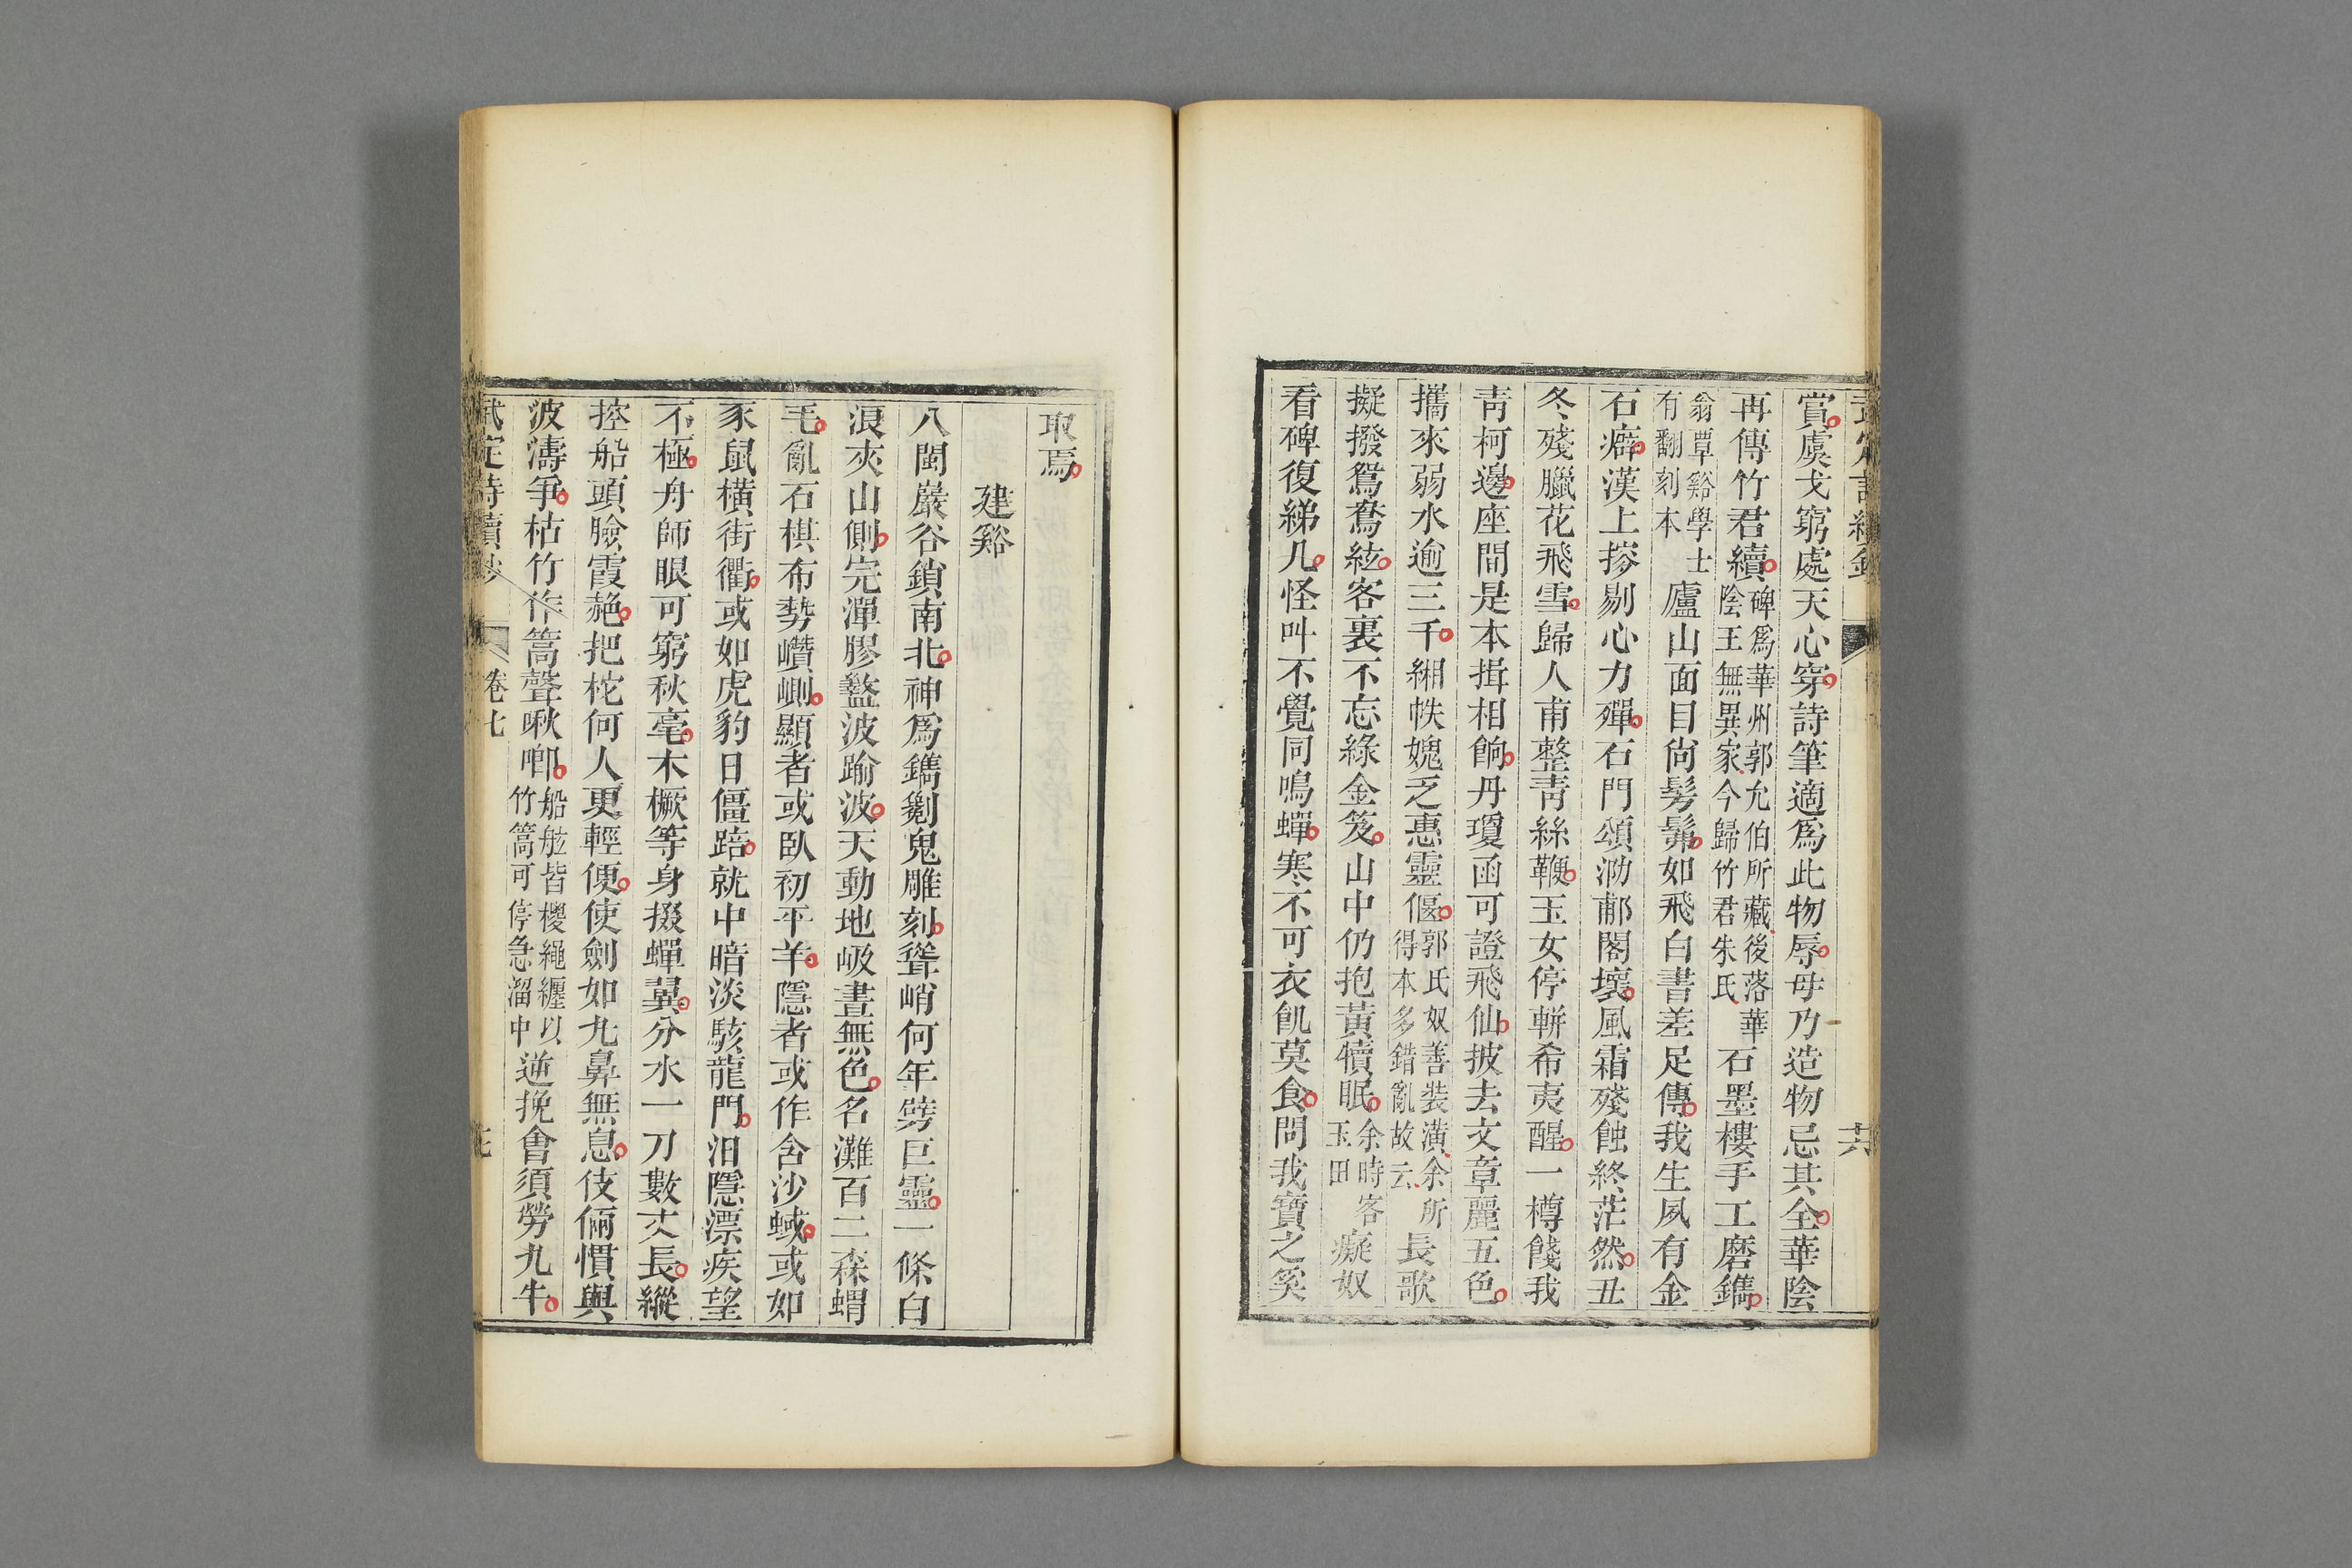 賞虞戈窮處天心穿詩筆適爲此物辱毋乃造物忌其全華陰
再傳竹君續碑爲華州郭允伯所藏後落華陰王無異家今歸竹君朱氏石墨樓手工磨鐫
翁覃谿學士有翻刻本廬山面目尚髣髴如飛白書差足傳我生夙有金
石癖漢上摉剔心力殫石門頌泐郙閣壞風霜殘蝕終茫然丑
冬殘臘花飛雪歸人甫整靑絲鞭玉女停軿希夷醒一樽餞我
靑柯邊座間是本揖相餉丹瓊函可證飛仙披去文章麗五色
攜來弱水逾三千緗帙媿乏惠靈偃郭氏奴善裝潢余所得本多錯亂故云長歌
擬撥鴛鴦絃客裏不忘綠金笈山中仍抱黃犢眠余時客玉田癡奴
看碑復綈几怪叫不覺同鳴蟬寒不可衣飢莫食問我寶之奚
取焉
建谿
八閩巖谷鎖南北神爲鐫劖鬼雕刻聳峭何年劈巨靈一條白
浪夾山側完潬膠盭波踰波天動地岋晝無色名灘百二森蝟
毛亂石棋布勢巑崱顯者或臥初平羊隱者或作含沙蜮或如
豕鼠橫街衢或如虎豹日僵踣就中暗淡駭龍門汨隱漂疾望
不極舟師眼可窮秋毫木橛等身掇蟬翼分水一刀數丈長縱
控船頭臉霞赩把柁何人更輕便使劍如丸鼻無息伎倆慣與
波濤爭枯竹作篙聲啾唧船舷皆椶繩纒以竹篙可停急溜中逆挽會須勞九牛
卷七